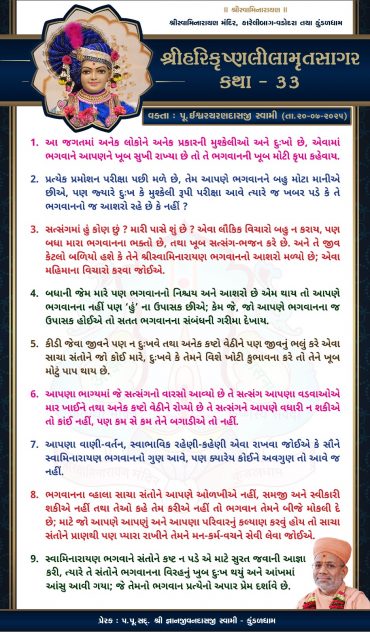 ॥ શ્રીસ્વામિનારાયણ ॥
શ્રીસ્વામિનારાયણ મંદિર, કારેલીબાગ-વડોદરા તથા કુંડળધામ
શ્રીહરિકૃષ્ણલીલામૃતસાગર
કથા - ૩૩
વક્તા : પૂ.ઈશ્વરચરણદાસજી સ્વામી (તા.૨૦-૦૭-૨૦૨૫)
1. આ જગતમાં અનેક લોકોને અનેક પ્રકારની મુશ્કેલીઓ અને દુઃખો છે, એવામાં
ભગવાને આપણને ખૂબ સુખી રાખ્યા છે તો તે ભગવાનની ખૂબ મોટી કૃપા કહેવાય.
2. પ્રત્યેક પ્રમોશન પરીક્ષા પછી મળે છે, તેમ આપણે ભગવાનને બહુ મોટા માનીએ
છીએ, પણ જ્યારે દુઃખ કે મુશ્કેલી રૂપી પરીક્ષા આવે ત્યારે જ ખબર પડે કે તે
ભગવાનનો જ આશરો રહે છે કે નહીં ?
3. સત્સંગમાં હું કોણ છું ? મારી પાસે શું છે ? એવા લૌકિક વિચારો બહુ ન કરાય, પણ
બધા મારા ભગવાનના ભક્તો છે, તથા ખૂબ સત્સંગ-ભજન કરે છે. અને તે જીવ
કેટલો બળિયો હશે કે તેને શ્રીસ્વામિનારાયણ ભગવાનનો આશરો મળ્યો છે; એવા
મહિમાના વિચારો કરવા જોઈએ.
4. બધાની જેમ મારે પણ ભગવાનનો નિશ્ચય અને આશરો છે એમ થાય તો આપણે
ભગવાનના નહીં પણ ‘હું’ ના ઉપાસક છીએ; કેમ જે, જો આપણે ભગવાનના જ
ઉપાસક હોઈએ તો સતત ભગવાનના સંબંધની ગરીમા દેખાય.
5. કીડી જેવા જીવને પણ ન દુઃખવે તથા અનેક કષ્ટો વેઠીને પણ જીવનું ભલું કરે એવા
સાચા સંતોને જો કોઈ મારે, દુઃખવે કે તેમને વિશે ખોટી કુભાવના કરે તો તેને ખૂબ
મોટું પાપ થાય છે.
6. આપણા ભાગ્યમાં જે સત્સંગનો વારસો આવ્યો છે તે સત્સંગ આપણા વડવાઓએ
માર ખાઈને તથા અનેક કષ્ટો વેઠીને રોપ્યો છે તે સત્સંગને આપણે વધારી ન શકીએ
તો કાંઈ નહીં, પણ કમ સે કમ તેને બગાડીએ તો નહીં.
7. આપણા વાણી-વર્તન, સ્વાભાવિક રહેણી-કહેણી એવા રાખવા જોઈએ કે સૌને
સ્વામિનારાયણ ભગવાનનો ગુણ આવે, પણ ક્યારેય કોઈને અવગુણ તો આવે જ
નહીં.
8. ભગવાનના વ્હાલા સાચા સંતોને આપણે ઓળખીએ નહીં, સમજી અને સ્વીકારી
શકીએ નહીં તથા તેઓ કહે તેમ કરીએ નહીં તો ભગવાન તેમને બીજે મોકલી દે
છે; માટે જો આપણે આપણું અને આપણા પરિવારનું કલ્યાણ કરવું હોય તો સાચા
સંતોને પ્રાણથી પણ પ્યારા રાખીને તેમને મન-કર્મ-વચને સેવી લેવા જોઈએ.
9. સ્વામિનારાયણ ભગવાને સંતોને કષ્ટ ન પડે એ માટે સુરત જવાની આજ્ઞા
કરી, ત્યારે તે સંતોને ભગવાનના વિરહનું ખુબ દુઃખ થયું અને આંખમાં
આંસુ આવી ગયા; જે તેમનો ભગવાન પ્રત્યેનો અપાર પ્રેમ દર્શાવે છે.
પ્રેરક : પ.પૂ.સદ્. શ્રી જ્ઞાનજીવનદાસજી સ્વામી - કુંડળધામ